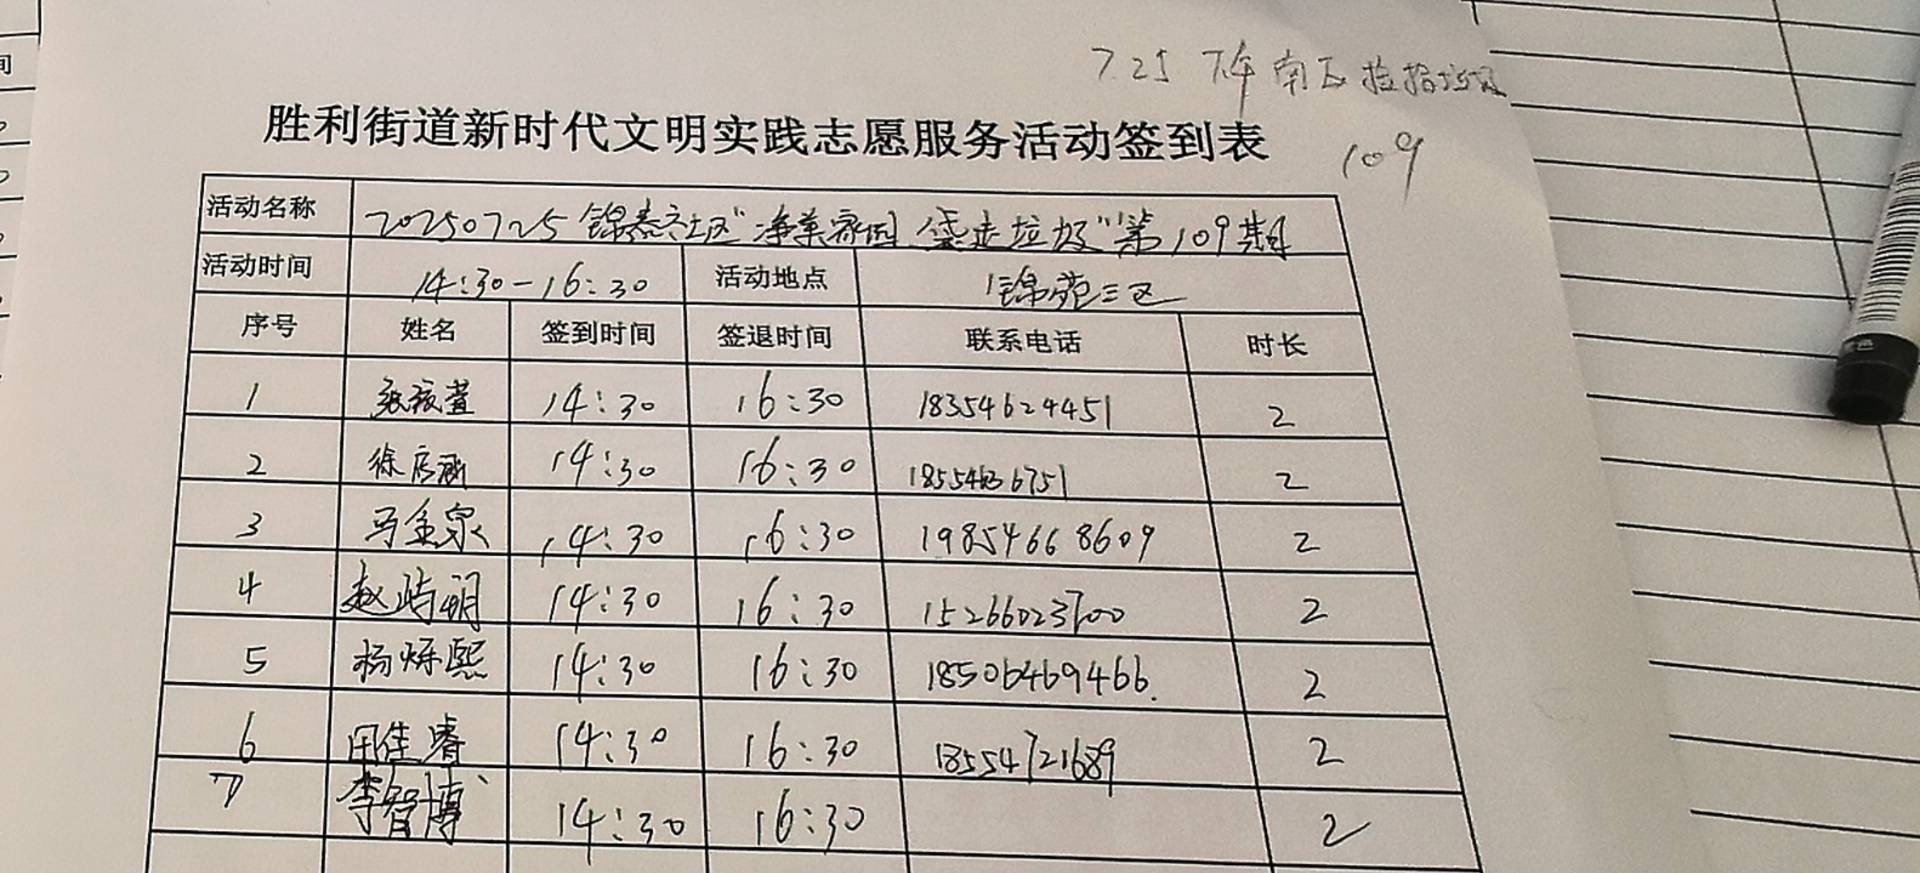 7.25 下午 南区捡拾垃圾
胜利街道新时代文明实践志愿服务活动签到表
109
活动名称 20250725锦泰社区"净美家园 袋走垃圾"第109期
活动时间 14:30-16:30 活动地点 锦苑三区
序号 姓名 签到时间 签退时间 联系电话 时长
1 张 萱 14:30 16:30 18354624451 2
2 徐 涵 14:30 16:30 2
3 马金泉 14:30 16:30 19854668609 2
4 赵 明 14:30 16:30 15266023700 2
5 杨烁熙 14:30 16:30 18506469466. 2
6 田佳睿 14:30 16:30 18554721689 2
7 李智博 14:30 16:30 2